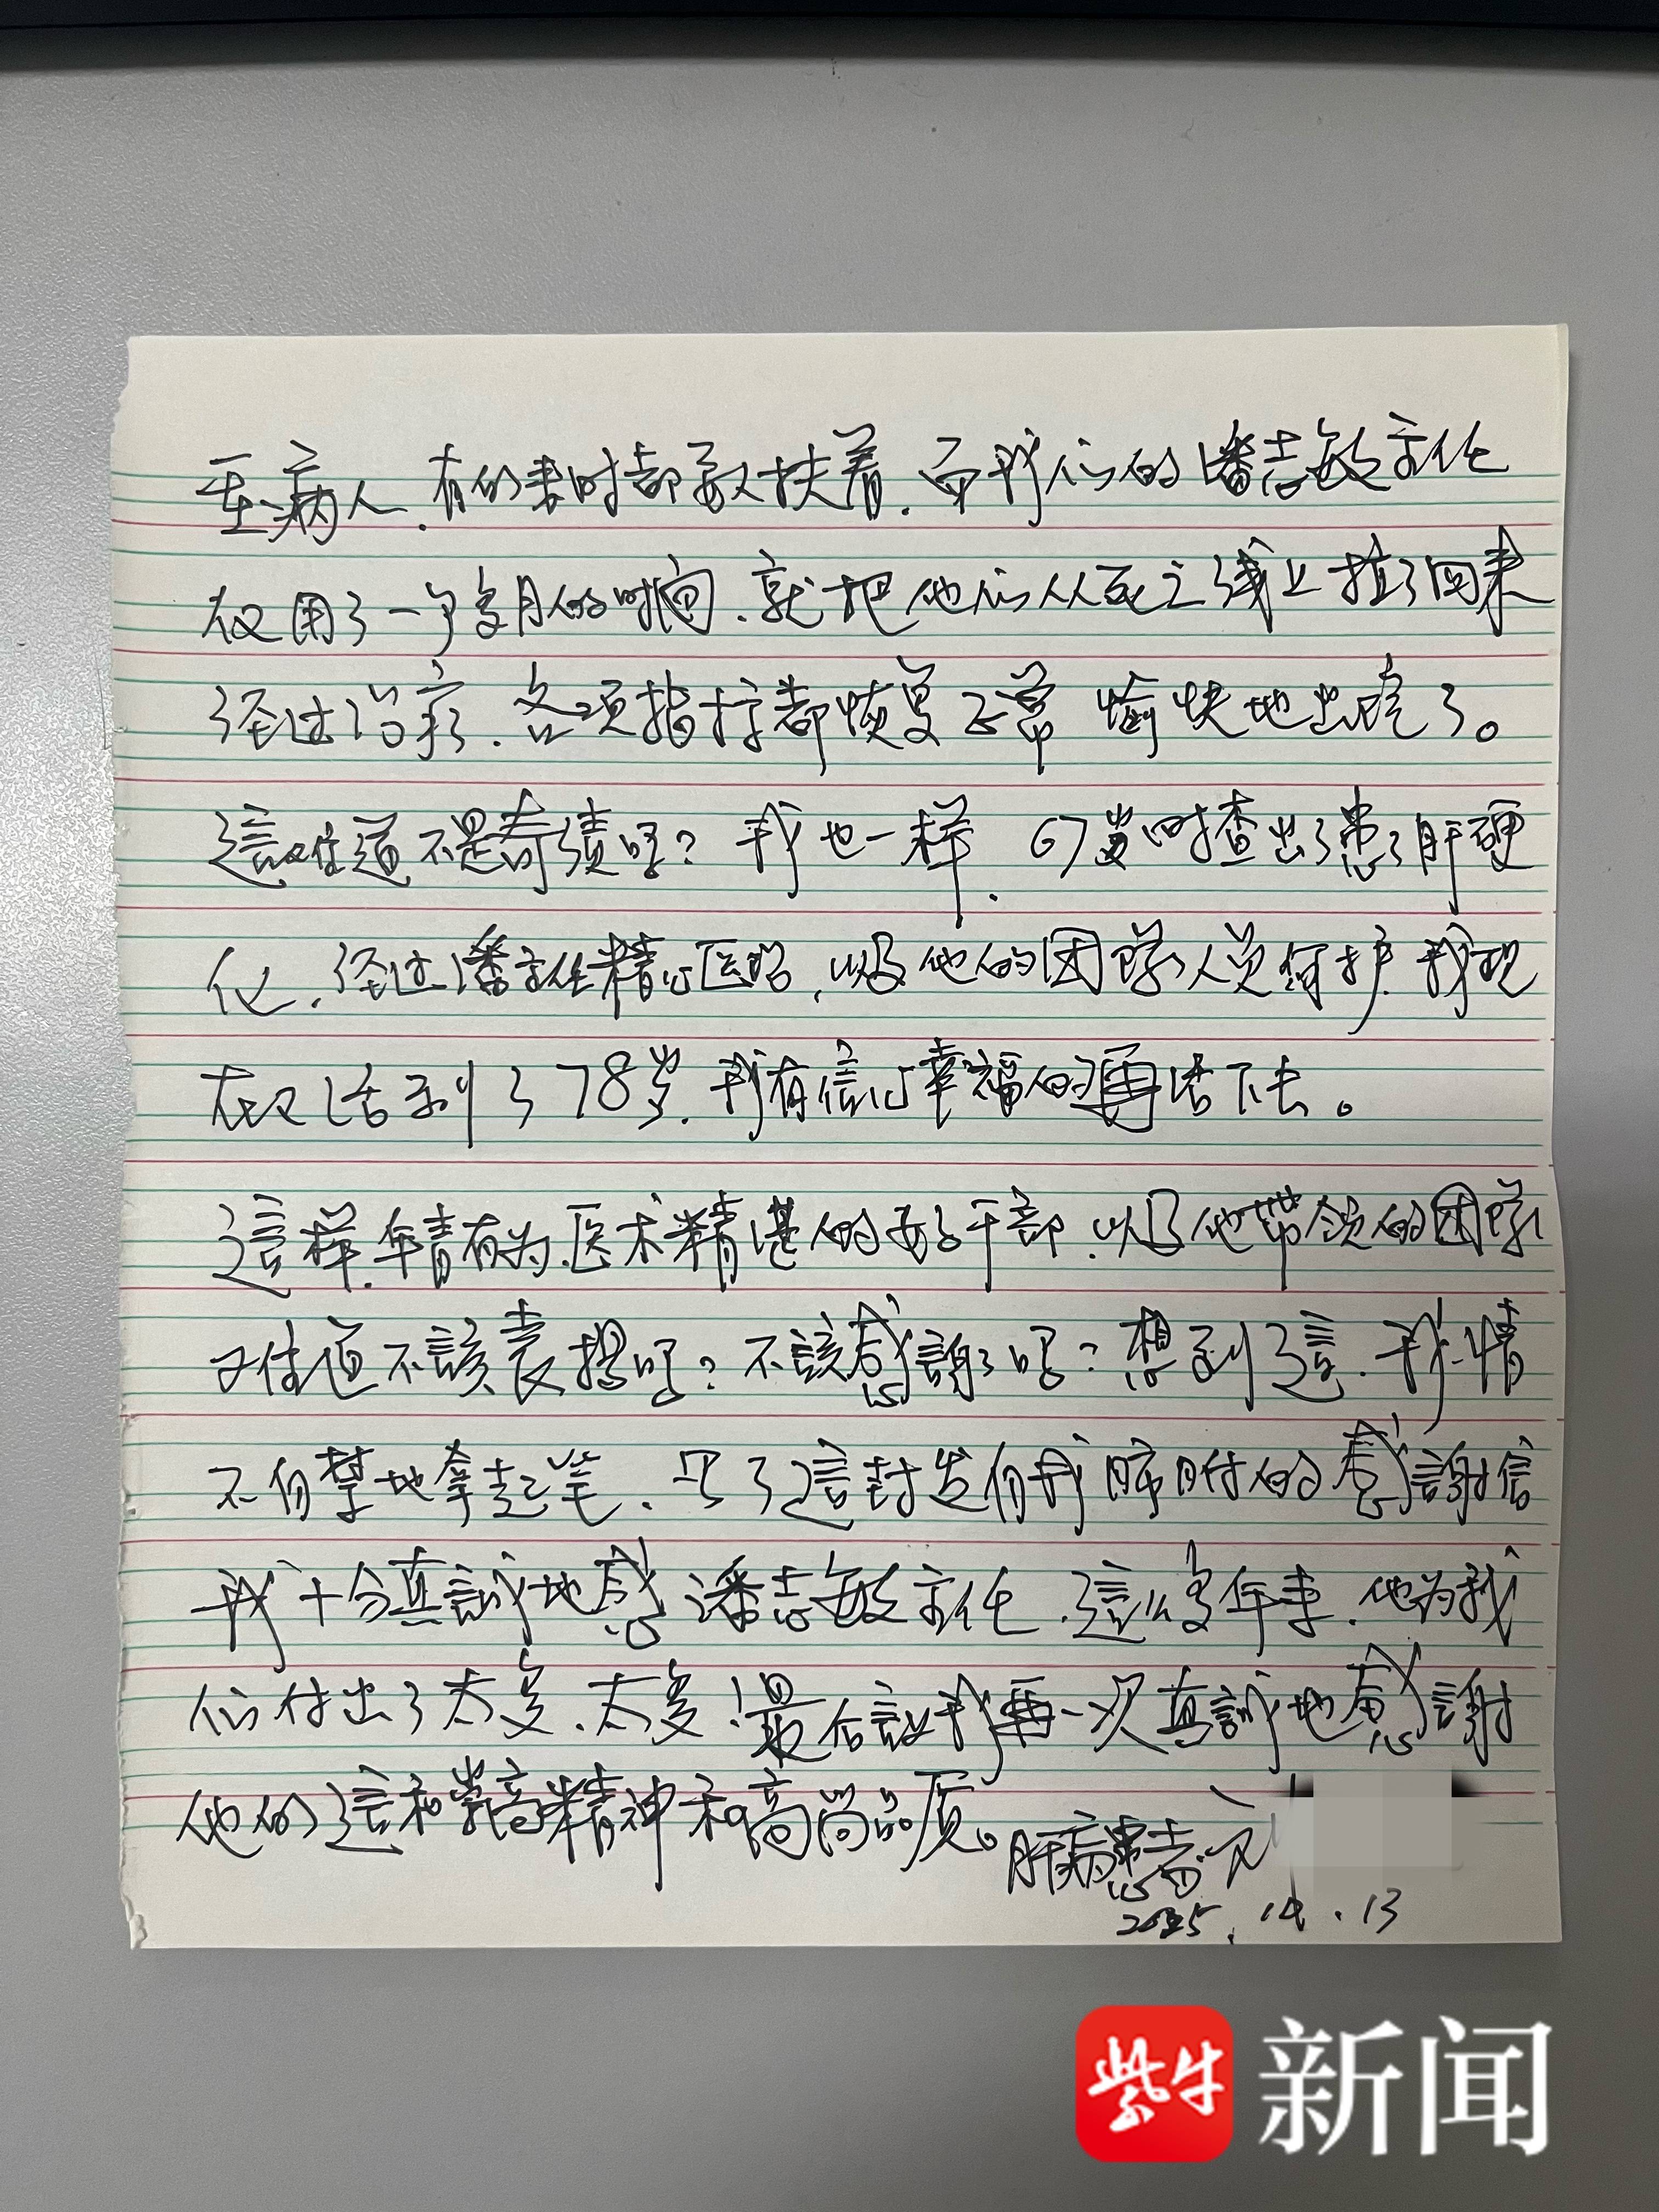 重病人，有的来时都要人扶着，而我们的潘志敏主任
仅用了一个多月的时间，就把他们从死亡线上拉了回来
经过治疗，各项指标都恢复正常 愉快地出院了。
這难道不是奇绩吗？我也一样，67岁时查出了患了肝硬
化，经过潘主任精心医治，以及他的团隊人员何护 我现
在又活到了78岁，我有信心幸福的再活下去。
這样年青有为，医术精湛的好干部，以及他带领的团隊
难道不該表揚吗？不該感謝吗？想到這，我情
不自禁地拿起笔，写了這封发自我肺腑的感謝信
我十分真誠地感潘志敏主任，這么多年来，他为我
们付出了太多、太多！最后让我再一次真誠地感謝
他的這种崇高精神和高尚品质。
肝病患者：刘
2025.
13
紫牛 新闻